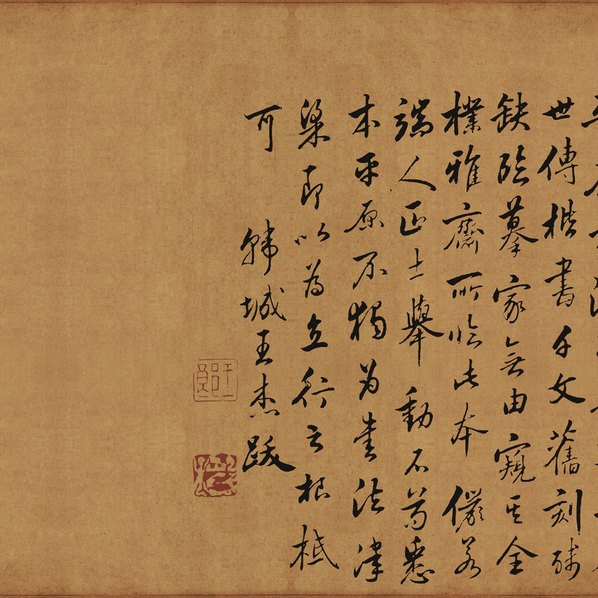 世傳楷書千文舊刻殘
缺臨摹家無由窺其全
樸雅齋所臨此本儼若
端人正士舉動不苟悉
本平原不獨為書法津
梁即以為立行之根柢
可 韓城王杰跋